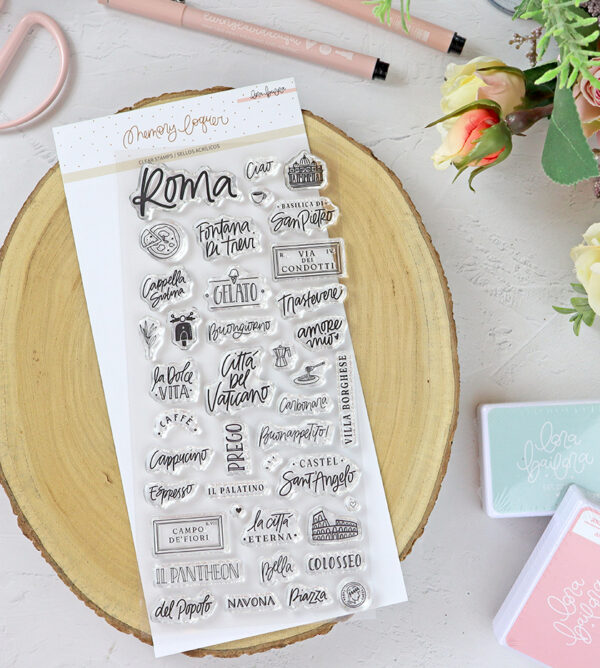 Memory Loquer
CLEAR STAMPS / SELLOS ACRÍLICOS
Roma
Ciao
BASILICA DI
San Pietro
Fontana
Di Trevi
R. IV.
VIA
DEI
CONDOTTI
Cappella
Sistina
GELATO
Trastevere
Buongiorno
amore
mio
la Dolce
VITA
Città
Del
Vaticano
Carbonara
VILLA BORGHESE
CAFFÈ
PREGO
Buonappetito!
Cappucino
CASTEL
Sant'Angelo
Espresso
IL PALATINO
R. VI.
CAMPO
DE'FIORI
la città
ETERNA
IL PANTHEON
Bella
COLOSSEO
del Popolo
NAVONA
Piazza
lora
bailora
lora
bailora